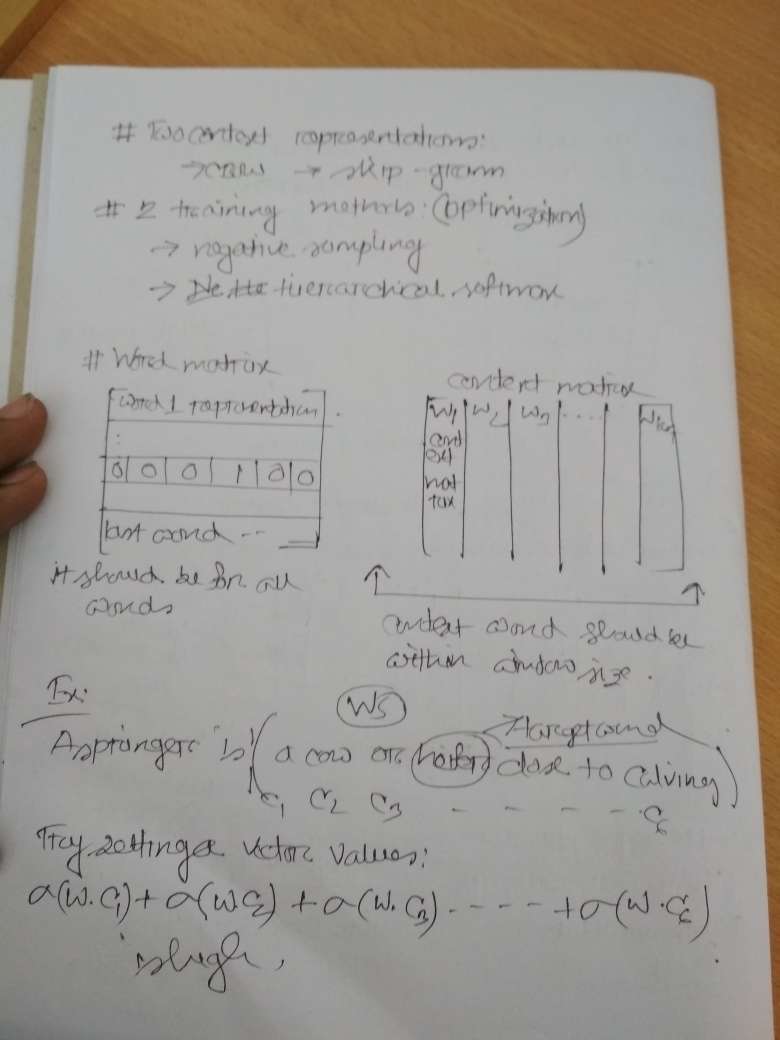 # Two context representations:
→ CBOW → skip-gram
# 2 training methods: (optimization)
→ negative sampling
→ Hierarchical softmax
# Word matrix
word 1 representation
:
0 0 0 1 0 0
last word --
it should be for all
words
context matrix
W1 W2 W3 ....
context word should be
within window size.
Ex:
WS
target word
A springer is (a cow or heifer close to calving)
C1 C2 C3 - - - - C6
Try setting a vector values:
σ(W.C1) + σ(WC2) + σ(W.C3) - - - - + σ(W.C6)
is high,